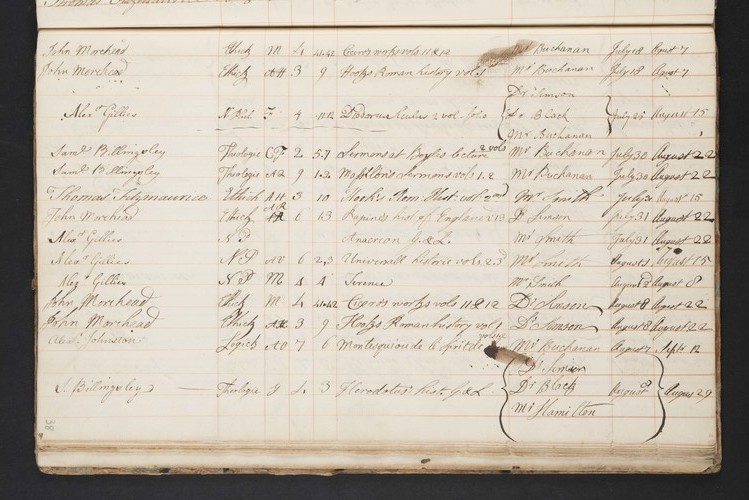 John Morehead Ethick M L 41.42 Ciceros works vols 11 & 12 Mr Buchanan July 18 Agust 7
John Morehead Ethick AH 3 9 Hooks Roman history vol 1 Mr Buchanan July 18 Agust 7
Dr Simson
Alexr Gillies N Phil. F 4 11.12 Diodorus Siculus 2 vol. folio Dr Black July 25 August 15
Mr Buchanan
2 vols
Saml Billingsley Theologie CF 2 5.7 Sermons at Boyles Lecture Mr Buchanan July 30 August 22
Saml Billingsley Theologie AQ 9 1.2 Masillons Sermons vols 1. 2 Mr Buchanan July 30 August 22
Thomas Fitzmaurice Ethick AH 3 10 Hooks Rom. Hist: vol: 2nd Mr Smith July August 15
John Morehead Ethick AR 6 13 Rapins hist of England v 13 Dr Simson July 31 August 22
Alexr Gillies N P Anacreon G. & L. Mr Smith July 31 August 22
Alexr Gillies N P AU 6 2,3 Universall historie vols 2,3d Mr Smith August 3 August 15
Alexr Gillies N P M 4 4 Terence Mr Smith August 8
John Morehead Ethick M L 41.42 Ciceros works vols 11 & 12 Dr Simson August 8 August 22
John Morehead Ethick AH 3 9 Hooks Roman history vol 1 Dr Simson August 8 August 22
vols 1.2
Alexr Johnston Logick AO 7 6 Montesquiou de le sprit de Mr Buchanan August 7 Septr 12
Dr Simson
S. Billingsley Theologie G L 3 Herodotes Hist. G & L Dr Black August August 29
Mr Hamilton